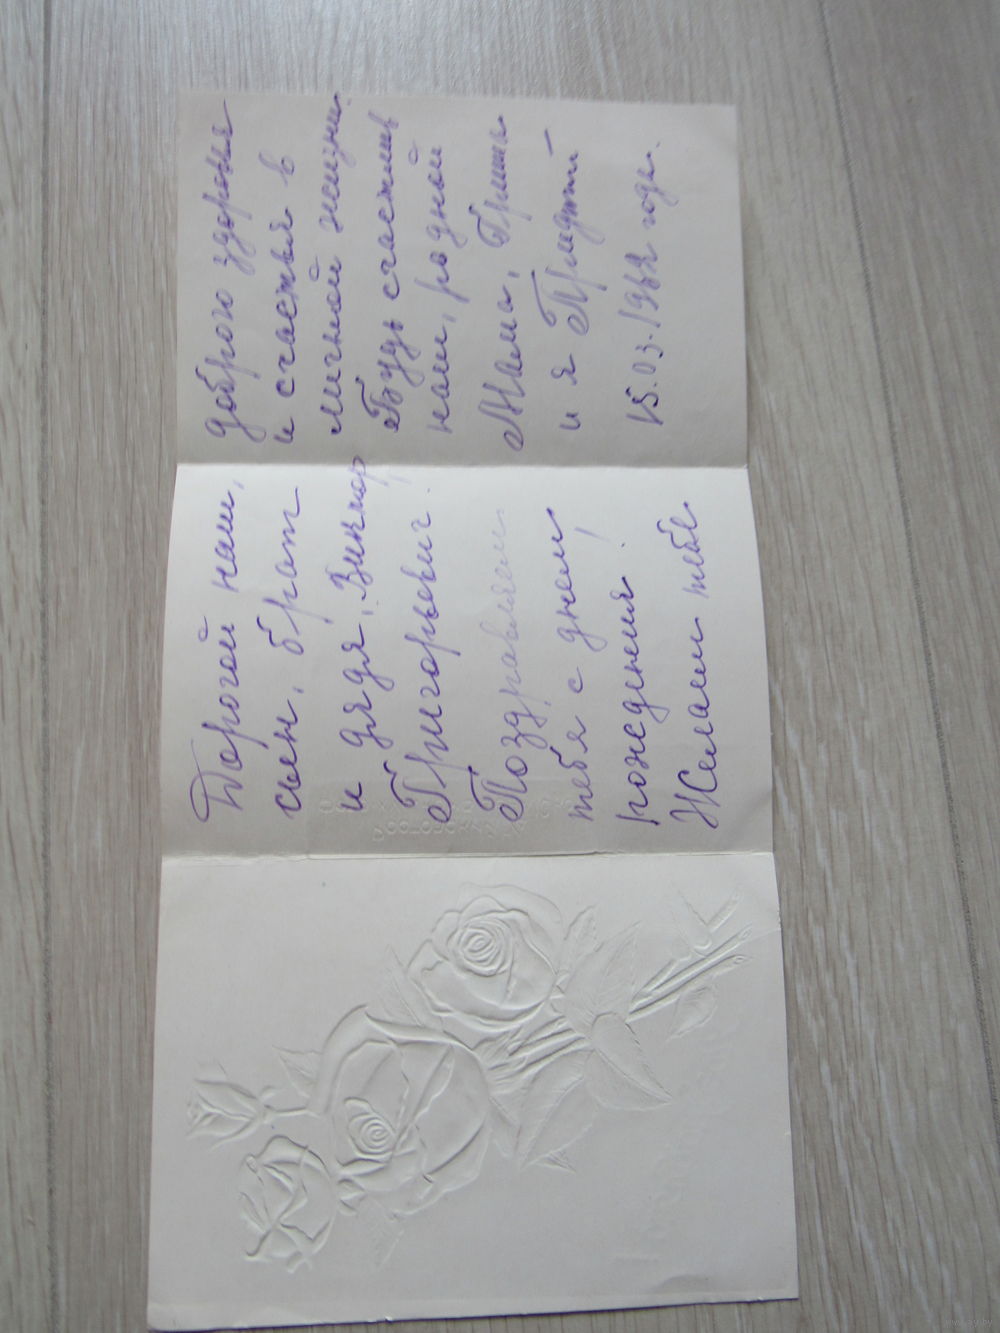 Дорогой наш,
сын, брат
и дядя, Виктор
Григорьевич.
Поздравляем
тебя с днем
рождения!
Желаем тебе
доброго здоровья
и счастья в
личной жизни.
Будь счастлив
наш, родной
Мама, Гриша
и я
15.03.1982 года.